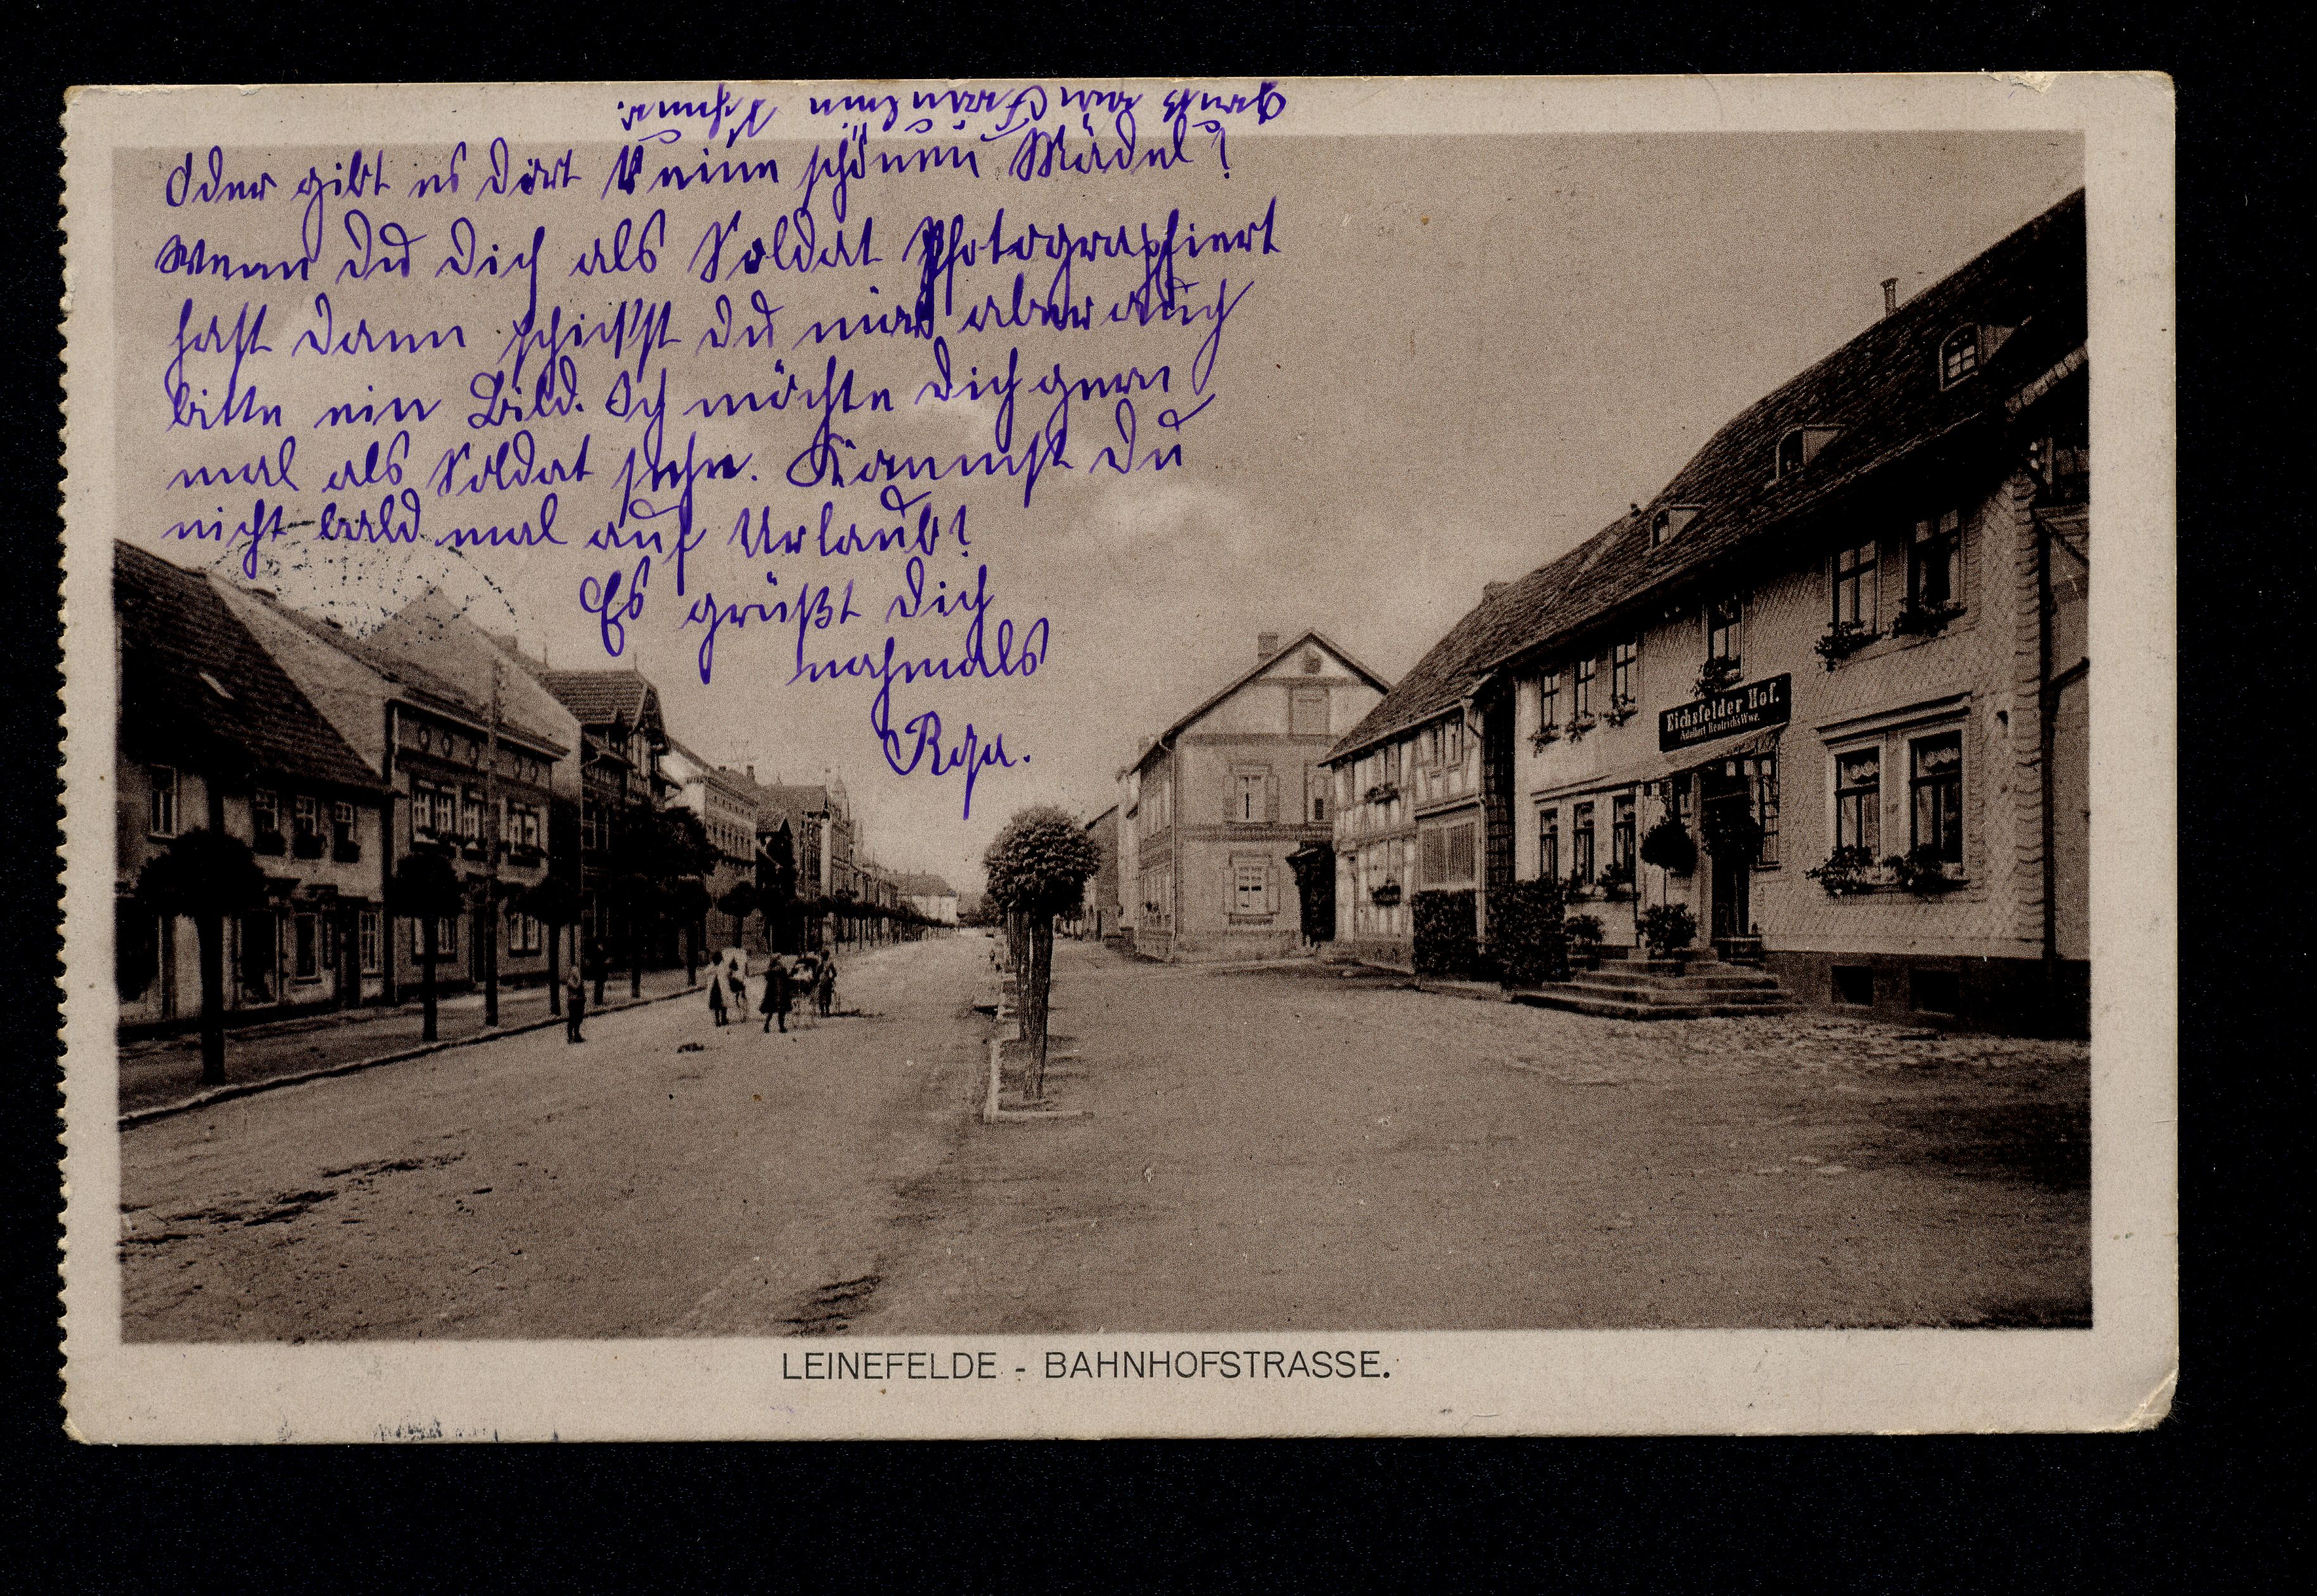 Gruß an Fränzchen
Oder gibt es dort keine schönen Mädel?
Wenn du dich als Soldat Photographiert
hast dann schickst du mir aber auch
bitte ein Bild. Ich möchte dich gern
mal als Soldat sehn. Kommst du
nicht bald mal auf Urlaub?
Es grüßt dich
nochmals
Eichsfelder Hof.
Adalbert Hentrich's Wwe.
LEINEFELDE - BAHNHOFSTRASSE.